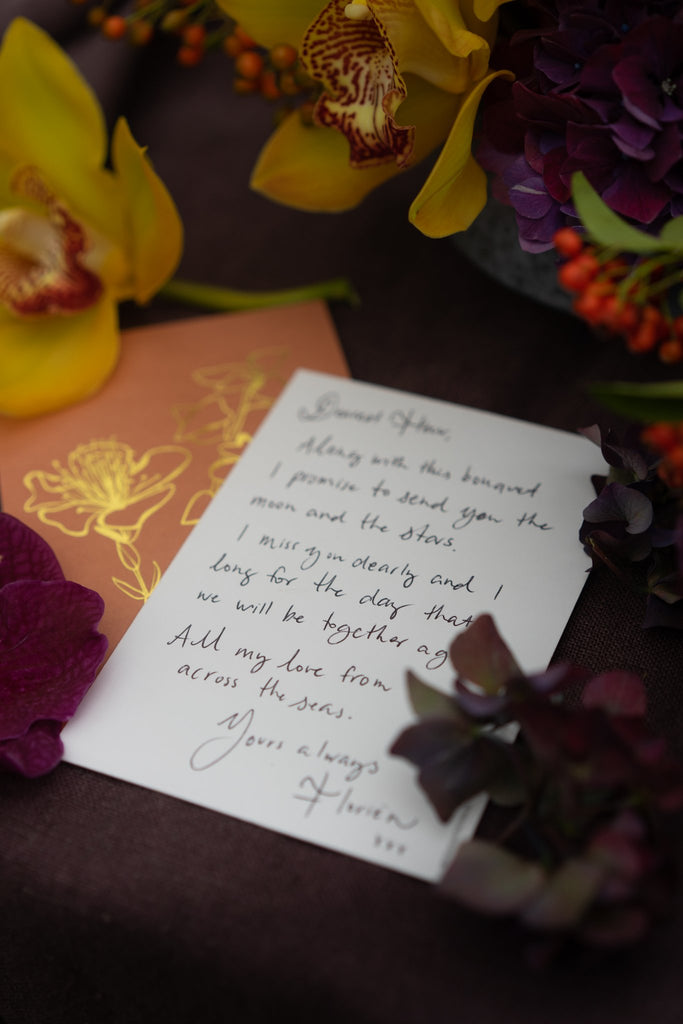 Dearest Fleur,
Along with this bouquet
I promise to send you the
moon and the stars.
I miss you dearly and I
long for the day that
we will be together ag
All my love from
across the seas.
Yours always
Florien